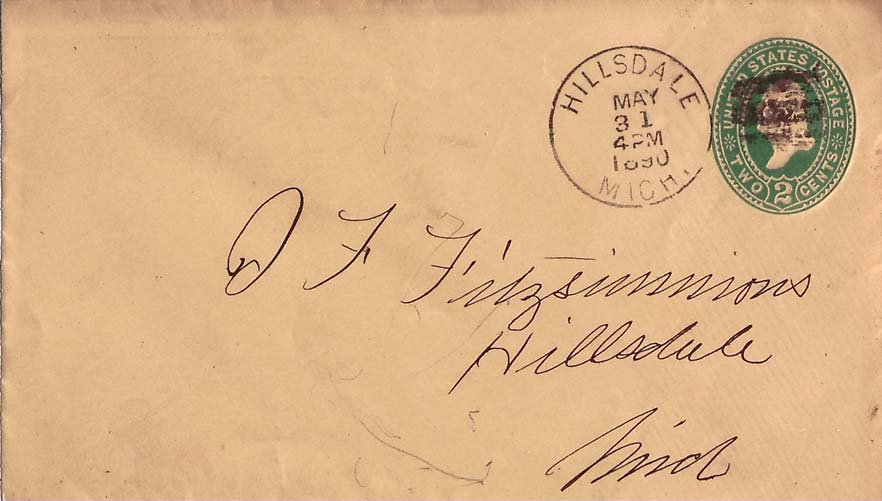 HILLSDALE
MAY
31
4PM
1890
MICH.
UNITED STATES POSTAGE
TWO 2 CENTS
F Fitzsimmons
Hillsdale
Mich